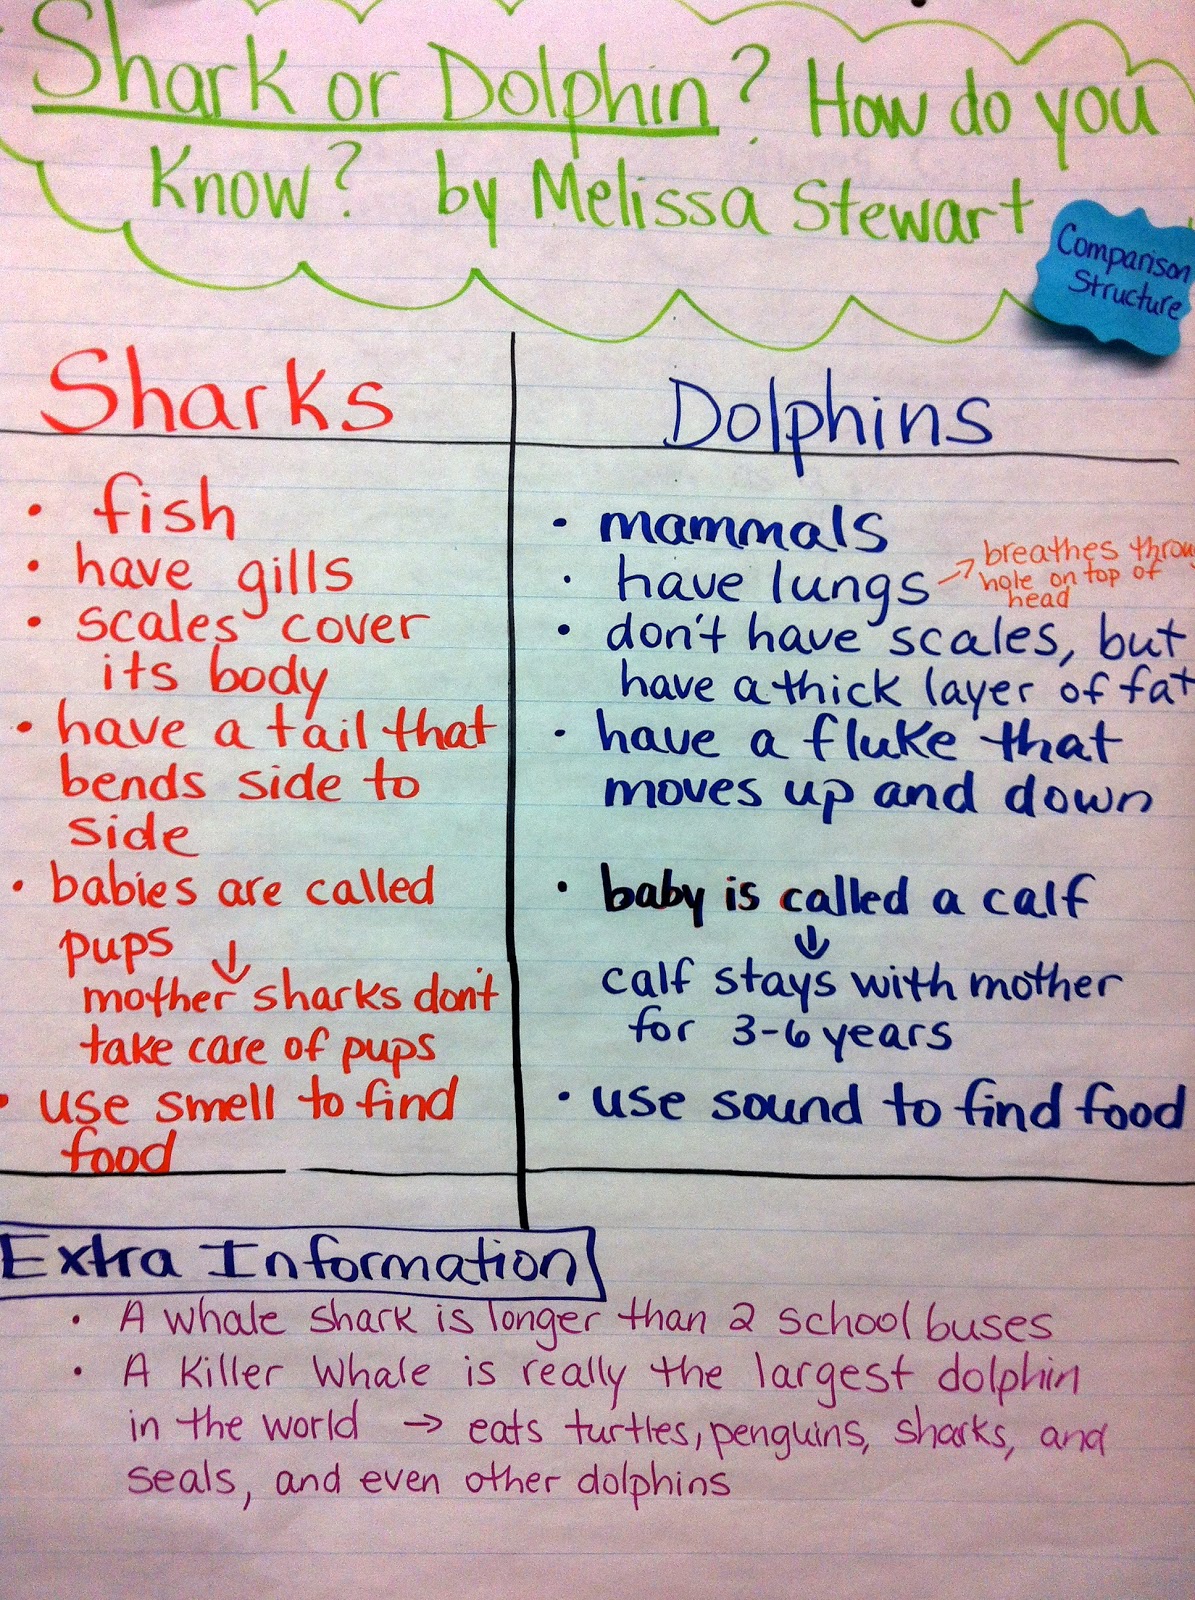 Shark or Dolphin? How do you
Know? by Melissa Stewart
Comparison
Structure
Sharks
• fish
• have gills
• scales cover
its body
• have a tail that
bends side to
side
• babies are called
pups ↓
mother sharks don't
take care of pups
• use smell to find
food
Dolphins
• mammals
• have lungs → breathes throug
hole on top of
head
• don't have scales, but
have a thick layer of fat
• have a fluke that
moves up and down
• baby is called a calf
↓
calf stays with mother
for 3-6 years
• use sound to find food
Extra Information
• A whale shark is longer than 2 school buses
• A Killer Whale is really the largest dolphin
in the world → eats turtles, penguins, sharks, and
seals, and even other dolphins